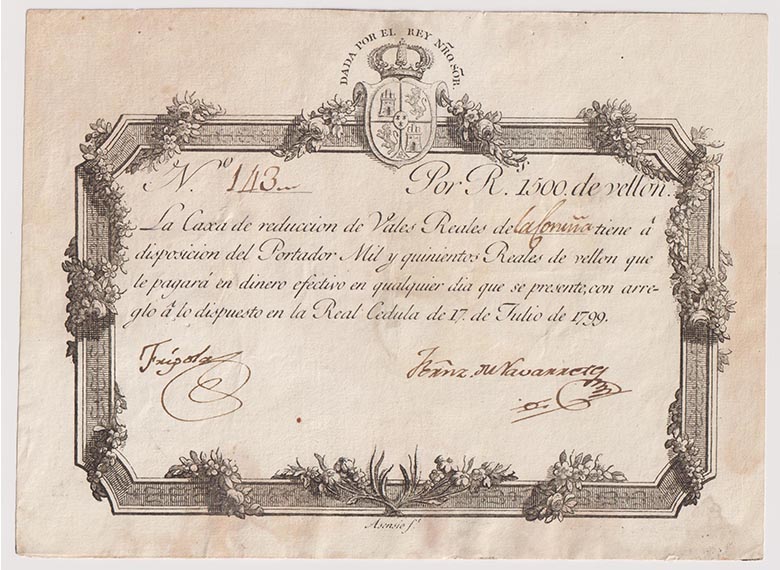 DADA POR EL REY NRO SOR.
N.º 143
Por R. 1500. de vellon.
La Caxa de reduccion de Vales Reales de la Coruña tiene â
disposicion del Portador Mil y quinientos Reales de vellon que
le pagará en dinero efectivo en qualquier dia que se presente, con arre-
glo â lo dispuesto en la Real Cedula de 17. de Julio de 1799.
Frígola
Fernz. de Navarrete
Asensio f.t